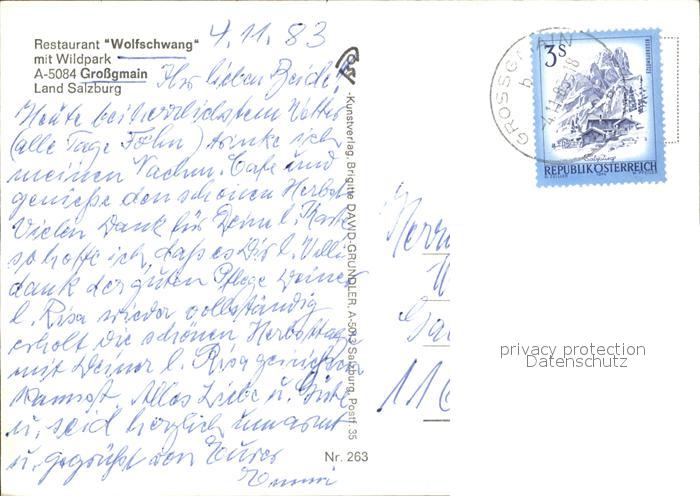 Restaurant "Wolfschwang"
mit Wildpark
A-5084 Großgmain
Land Salzburg
4.11.83
Ihr lieben Beide!
Heute bei herrlichstem Wetter
(alle Tage Föhn) trinke ich
meinen Nachm. Cafe und
genieße den schönen Herbst.
Vielen Dank für Deine l. Karte
so hoffe ich, daß es Dir l. Willi
dank der guten Pflege Deiner
l. Risa wieder vollständig
erholt die schönen Herbsttage
mit Deiner l. Risa genießen
kannst. Alles Liebe u. Gute
u. seid herzlich umarmt
u. gegrüßt von Eurer
Emmi
Kunstverlag, Brigitte DAVID-GRÜNDLER, A-5013 Salzburg, Postf. 35
Nr. 263
GROSSGMAIN
3S
REPUBLIK ÖSTERREICH
Herrn
privacy protection
Datenschutz